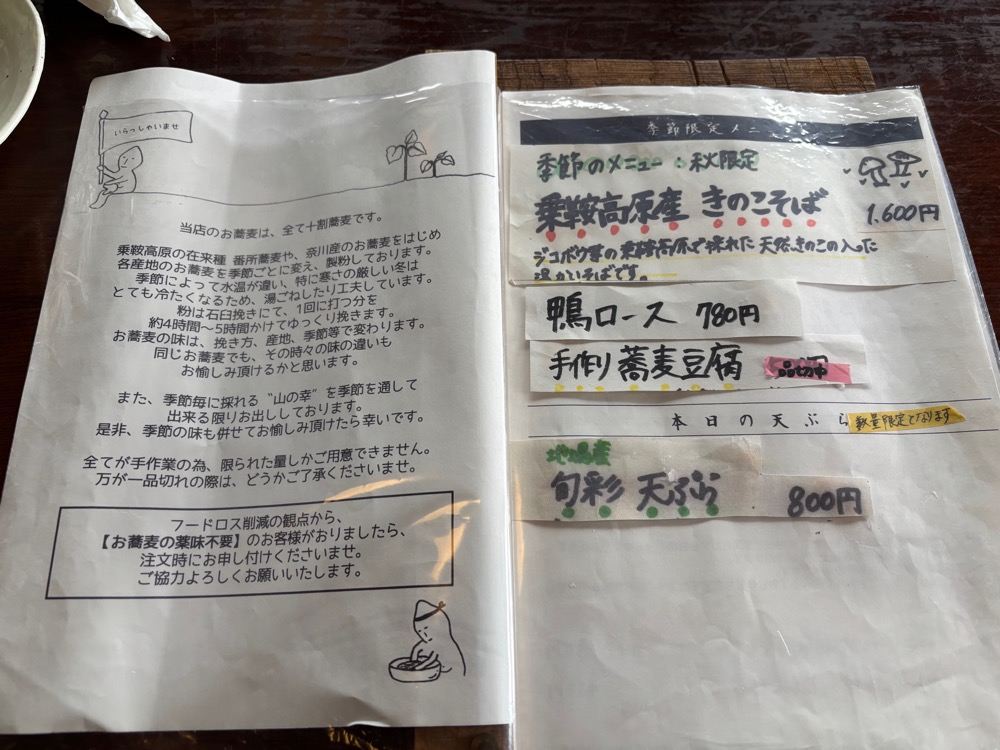 いらっしゃいませ
当店のお蕎麦は、全て十割蕎麦です。
乗鞍高原の在来種 番所蕎麦や、奈川産のお蕎麦をはじめ
各産地のお蕎麦を季節ごとに変え、製粉しております。
季節によって水温が違い、特に寒さの厳しい冬は
とても冷たくなるため、湯ごねしたり工夫しています。
粉は石臼挽きにて、1回に打つ分を
約4時間〜5時間かけてゆっくり挽きます。
お蕎麦の味は、挽き方、産地、季節等で変わります。
同じお蕎麦でも、その時々の味の違いも
お愉しみ頂けるかと思います。
また、季節毎に採れる〝山の幸〟を季節を通して
出来る限りお出ししております。
是非、季節の味も併せてお愉しみ頂けたら幸いです。
全てが手作業の為、限られた量しかご用意できません。
万が一品切れの際は、どうかご了承くださいませ。
フードロス削減の観点から、
【お蕎麦の薬味不要】のお客様がおりましたら、
注文時にお申し付けくださいませ。
ご協力よろしくお願いいたします。
季節限定メニ
季節のメニュー：秋限定
乗鞍高原産 きのこそば
1.600円
ジコボウ等の乗鞍高原で採れた 天然きのこの入った
温かいそばです。
鴨ロース 780円
手作り 蕎麦豆腐
品切中
本日の天ぷら
数量限定となります
旬彩 天ぷら 800円